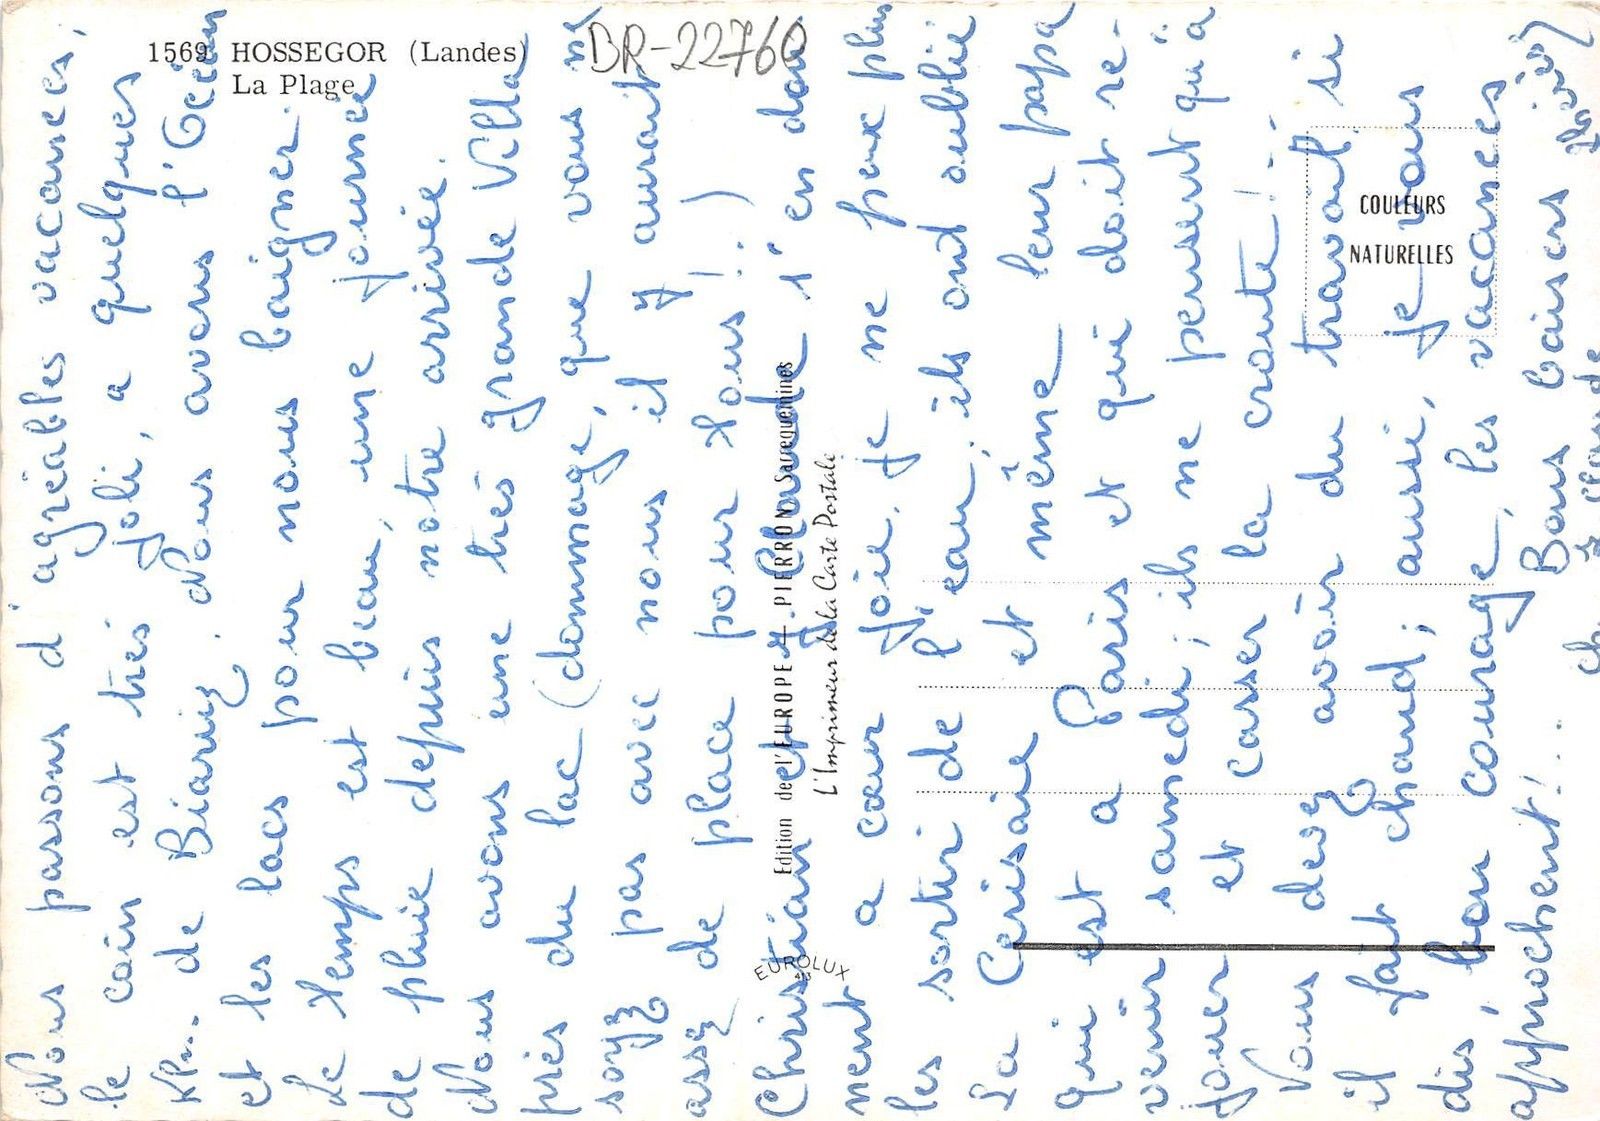 1569 HOSSEGOR (Landes)
La Plage
BR-22760
Nous passons d'agréables vacances,
le coin est très joli, a quelques
Km. de Biaritz. Nous avons l'Océan
et les lacs pour nous baigner.
Le temps est beau, une journée
de pluie depuis notre arrivée.
Nous avons une très grande Villa
près du lac (dommage, que vous ne
soyez pas avec nous il y aurait
assez de place pour tous!!)
Christian et Claude s'en don-
nent a cœur joie, je ne peux plus
les sortir de l'eau; ils ont oublié
La Cerisaie et même leur papa
qui est a Paris et qui doit re-
venir samedi; ils ne pensent qu'a
jouer et casser la croute!..
Vous devez avoir du travail si
il fait chaud; aussi, je vous
dis, bon courage, les vacances
approchent!.. Bons baisers
COULEURS
NATURELLES
Edition de l'EUROPE - PIERRON Sarreguemines
L'Imprimeur de la Carte Postale
EUROLUX